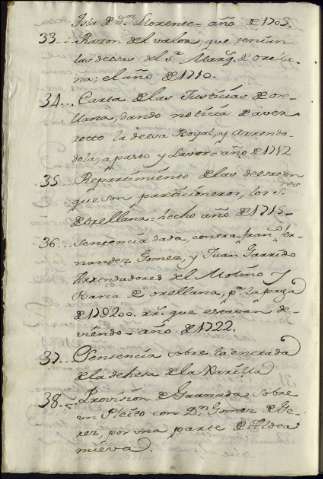 de Dn. Llorente - año de 1705.
33.. Razon del valor, que tenian
las decras del Sr. Marqs. de orella-
na, el año de 1710.
34... Carta de las Justicias de ore-
llana, dando noticia de aver
roto la decra Boyal, y arrenda-
dola, a pasto y Lavor - año de 1712
35. Repartimiento de las decras en
que son participes, los de
de orellana - hecho año de 1715-
36.. Sentencia dada, contra fran.co Fer-
nandez Gomez, y Juan Garrido
Arrendadores del Molino y
Barca de orellana, pr. la paga
de 179200 rs. que estavan de-
viendo - año de 1722.
37. Sentencia sobre la entrada
de la dehesa de la
38.. Provision de Granada sobre
un Pleito con Dn. Gomez de
por una parte de Aldea
nueva.